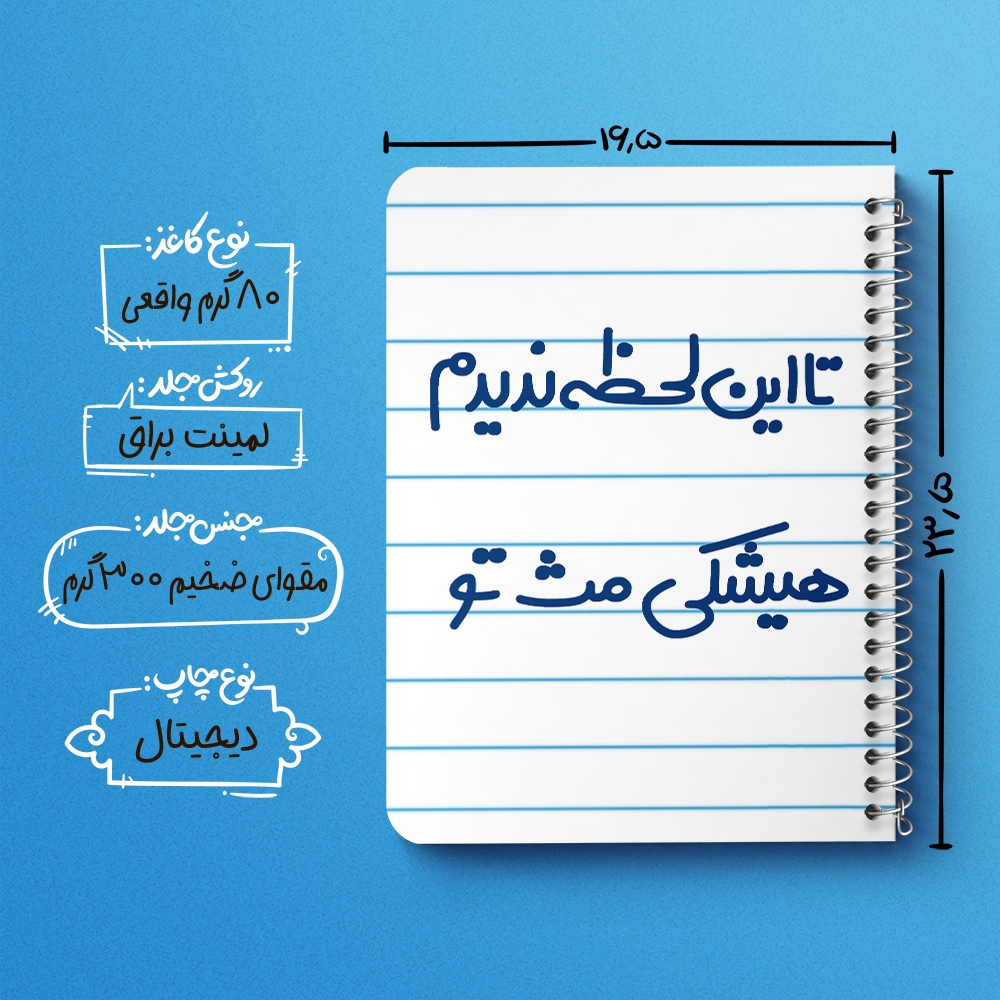 ۱۶,۵
تا این لحظه ندیدم
هیشکی مث تو
۲۳,۵
نوع کاغذ:
۸۰ گرم واقعی
روکش جلد:
لمینت براق
جنس جلد:
مقوای ضخیم ۳۰۰ گرم
نوع چاپ:
دیجیتال